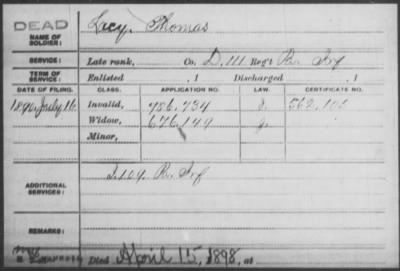 DEAD
NAME OF SOLDIER:
Lacy, Thomas
SERVICE:
Late rank, Co. D. 111 Reg't Pa. Inf
TERM OF SERVICE:
Enlisted , 1 Discharged , 1
DATE OF FILING. CLASS. APPLICATION NO. LAW. CERTIFICATE NO.
1890, July 16 Invalid, 786.734 562.
Widow, 676,149
Minor,
ADDITIONAL SERVICES:
I. 109. Pa. Inf
REMARKS:
Died April 15, 1898, at